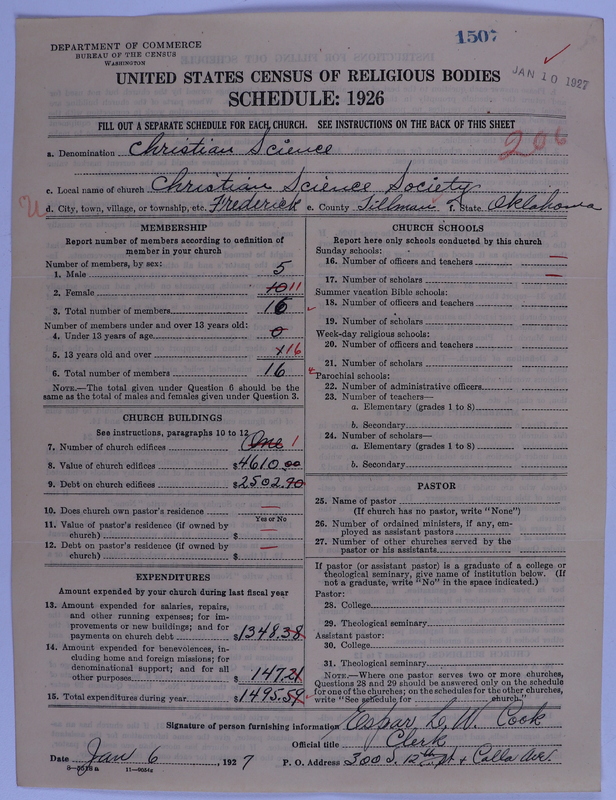 1507
DEPARTMENT OF COMMERCE
BUREAU OF THE CENSUS
WASHINGTON
JAN 10 1927
UNITED STATES CENSUS OF RELIGIOUS BODIES
SCHEDULE: 1926
FILL OUT A SEPARATE SCHEDULE FOR EACH CHURCH. SEE INSTRUCTIONS ON THE BACK OF THIS SHEET
206
a. Denomination Christian Science
c. Local name of church Christian Science Society
d. City, town, village, or township, etc. Frederick e. County Tillman f. State Oklahoma
MEMBERSHIP
Report number of members according to definition of
member in your church
Number of members, by sex:
1. Male 5
2. Female 10 11
3. Total number of members 16
Number of members under and over 13 years old:
4. Under 13 years of age 0
5. 13 years old and over 16
6. Total number of members 16
NOTE.—The total given under Question 6 should be the
same as the total of males and females given under Question 3.
CHURCH BUILDINGS
See instructions, paragraphs 10 to 12
7. Number of church edifices One 1
8. Value of church edifices $4610.00
9. Debt on church edifices $2502.90
10. Does church own pastor's residence —
Yes or No
11. Value of pastor's residence (if owned by
church) $ —
12. Debt on pastor's residence (if owned by
church) $ —
EXPENDITURES
Amount expended by your church during last fiscal year
13. Amount expended for salaries, repairs,
and other running expenses; for im-
provements or new buildings; and for
payments on church debt $1348.38
14. Amount expended for benevolences, in-
cluding home and foreign missions; for
denominational support; and for all
other purposes 147.21
15. Total expenditures during year $1495.59
CHURCH SCHOOLS
Report here only schools conducted by this church
Sunday schools:
16. Number of officers and teachers —
17. Number of scholars —
Summer vacation Bible schools:
18. Number of officers and teachers
19. Number of scholars
Week-day religious schools:
20. Number of officers and teachers
21. Number of scholars
Parochial schools:
22. Number of administrative officers
23. Number of teachers—
a. Elementary (grades 1 to 8)
b. Secondary
24. Number of scholars—
a. Elementary (grades 1 to 8)
b. Secondary
PASTOR
25. Name of pastor
(If church has no pastor, write "None")
26. Number of ordained ministers, if any, em-
ployed as assistant pastors
27. Number of other churches served by the
pastor or his assistants
If pastor (or assistant pastor) is a graduate of a college or
theological seminary, give name of institution below. (If
not a graduate, write "No" in the space indicated.)
Pastor:
28. College
29. Theological seminary
Assistant pastor:
30. College
31. Theological seminary
NOTE.—Where one pastor serves two or more churches,
Questions 28 and 29 should be answered only on the schedule
for one of the churches; on the schedules for the other churches,
write "See schedule for church."
Signature of person furnishing information L. W. Cook
Official title Clerk
Date Jan 6, 1927 P. O. Address 300 S. 12th St & Calla Ave.
8—5518a 11—9054g